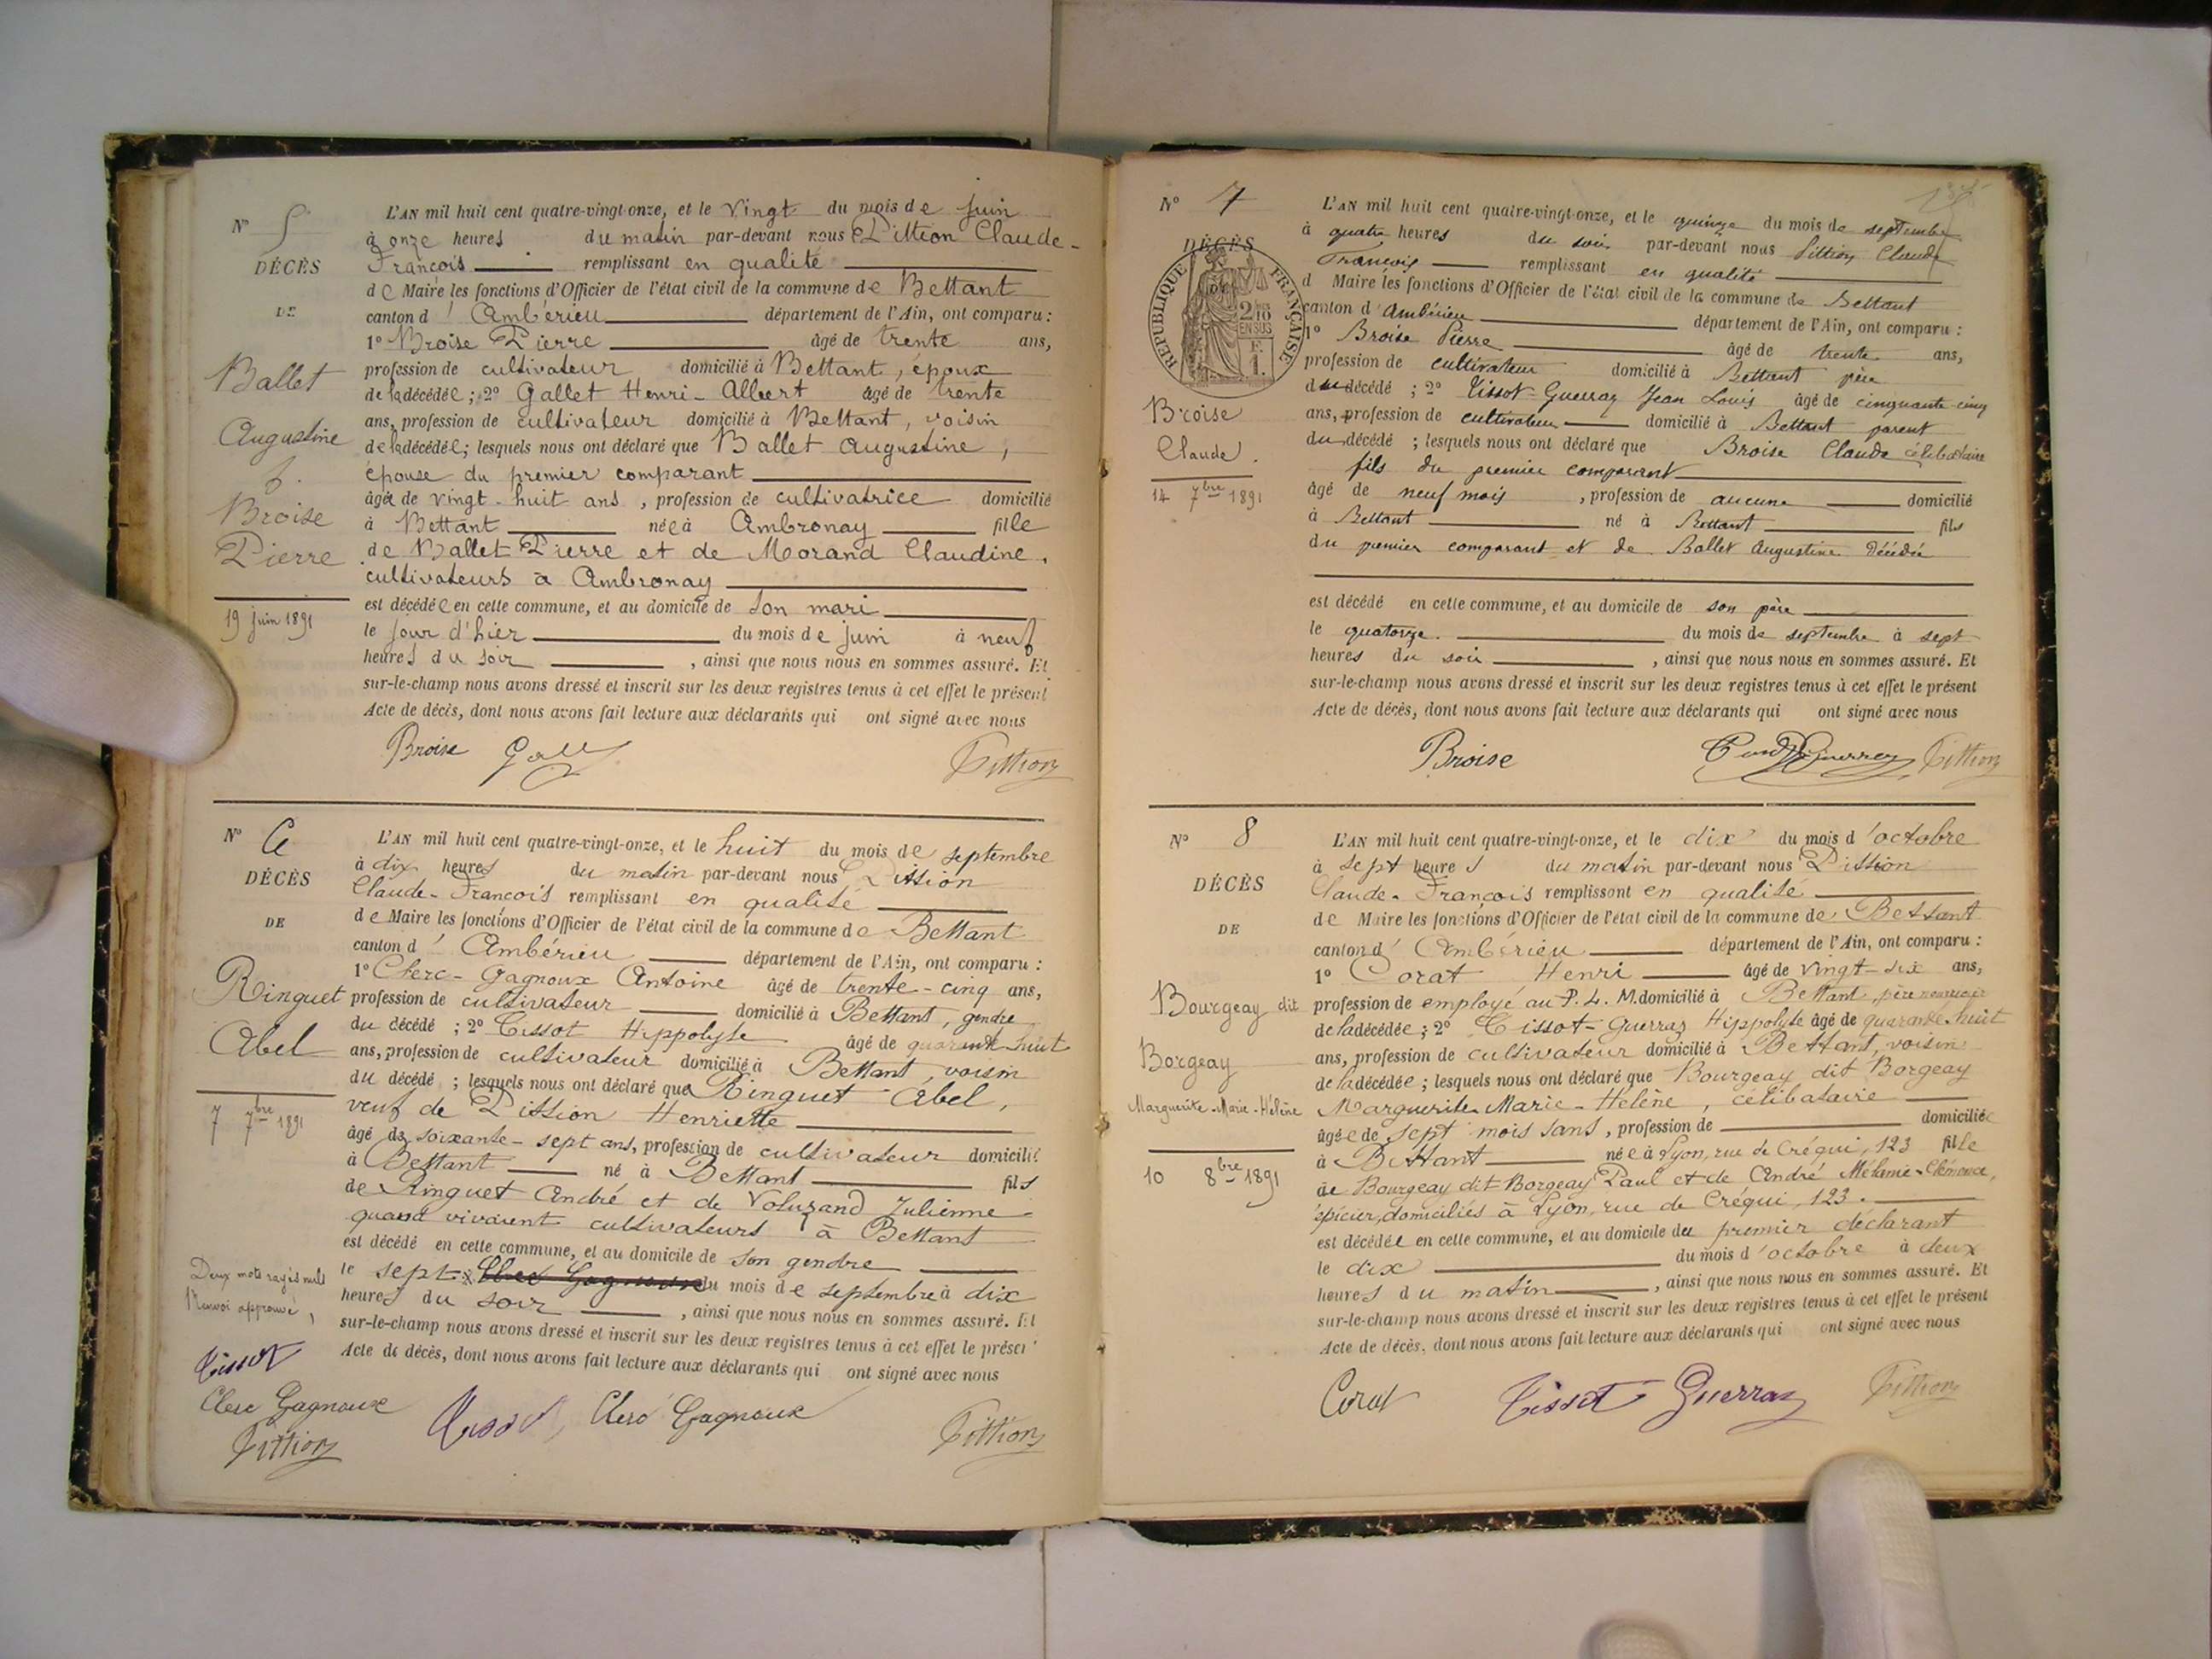 N° 5
DÉCÈS
DE
Ballet
Augustine
f.
Broise
Pierre
19 juin 1891
L'AN mil huit cent quatre-vingt-onze, et le vingt du mois de juin
à onze heures du matin par-devant nous Pittion Claude-
François remplissant en qualité
de Maire les fonctions d'Officier de l'état civil de la commune de Bettant
canton d'Ambérieu département de l'Ain, ont comparu :
1° Broise Pierre âgé de trente ans,
profession de cultivateur domicilié à Bettant, époux
de la décédée ; 2° Gallet Henri-Albert âgé de trente
ans, profession de cultivateur domicilié à Bettant, voisin
de la décédée; lesquels nous ont déclaré que Ballet Augustine,
épouse du premier comparant
âgée de vingt-huit ans, profession de cultivatrice domicilié
à Bettant née à Ambronay fille
de Ballet Pierre et de Morand Claudine,
cultivateurs à Ambronay
est décédée en cette commune, et au domicile de son mari
le jour d'hier du mois de juin à neuf
heures du soir, ainsi que nous nous en sommes assuré. Et
sur-le-champ nous avons dressé et inscrit sur les deux registres tenus à cet effet le présent
Acte de décès, dont nous avons fait lecture aux déclarants qui ont signé avec nous
Broise Pittion
N° 6
DÉCÈS
DE
Ringuet
Abel
7 7bre 1891
L'AN mil huit cent quatre-vingt-onze, et le huit du mois de septembre
à dix heures du matin par-devant nous Pittion
Claude-François remplissant en qualité
de Maire les fonctions d'Officier de l'état civil de la commune de Bettant
canton d'Ambérieu département de l'Ain, ont comparu :
1° Clerc-Gagnoux Antoine âgé de trente-cinq ans,
profession de cultivateur domicilié à Bettant, gendre
du décédé ; 2° Tissot Hippolyte âgé de quarante-huit
ans, profession de cultivateur domicilié à Bettant, voisin
du décédé ; lesquels nous ont déclaré que Ringuet Abel,
veuf de Pittion Henriette
âgé de soixante-sept ans, profession de cultivateur domicilié
à Bettant né à Bettant fils
de Ringuet André et de Julienne
quand vivaient cultivateurs à Bettant
est décédé en cette commune, et au domicile de son gendre
le sept x Clerc Gagnoux du mois de septembre à dix
heures du soir, ainsi que nous nous en sommes assuré. Et
sur-le-champ nous avons dressé et inscrit sur les deux registres tenus à cet effet le présen
Acte de décès, dont nous avons fait lecture aux déclarants qui ont signé avec nous
Deux mots rayés nuls
Renvoi approuvé,
Tissot
Clerc Gagnoux
Pittion
Tissot, Clerc Gagnoux Pittion
N° 7
DÉCÈS
DE
RÉPUBLIQUE FRANÇAISE
2/10
EN SUS
F.
1.
Broise
Claude.
14 7bre 1891
L'AN mil huit cent quatre-vingt-onze, et le quinze du mois de septembre
à quatre heures du soir par-devant nous Pittion Claude
François remplissant en qualité
d Maire les fonctions d'Officier de l'état civil de la commune de Bettant
canton d'Ambérieu département de l'Ain, ont comparu :
1° Broise Pierre âgé de trente ans,
profession de cultivateur domicilié à Bettant père
du décédé ; 2° Tissot-Guerraz Jean Louis âgé de cinquante-cinq
ans, profession de cultivateur domicilié à Bettant parent
du décédé ; lesquels nous ont déclaré que Broise Claude célibataire
fils du premier comparant
âgé de neuf mois, profession de aucune domicilié
à Bettant né à Bettant fils
du premier comparant et de Ballet Augustine décédée
est décédé en cette commune, et au domicile de son père
le quatorze. du mois de septembre à sept
heures du soir, ainsi que nous nous en sommes assuré. Et
sur-le-champ nous avons dressé et inscrit sur les deux registres tenus à cet effet le présent
Acte de décès, dont nous avons fait lecture aux déclarants qui ont signé avec nous
Broise Pittion
N° 8
DÉCÈS
DE
Bourgeay dit
Borgeay
Marguerite-Marie-Hélène
10 8bre 1891
L'AN mil huit cent quatre-vingt-onze, et le dix du mois d'octobre
à sept heures du matin par-devant nous Pittion
Claude-François remplissant en qualité
de Maire les fonctions d'Officier de l'état civil de la commune de Bettant
canton d'Ambérieu département de l'Ain, ont comparu :
1° Corat Henri âgé de vingt-six ans,
profession de employé au P. L. M. domicilié à Bettant, père nourricier
de la décédée ; 2° Tissot-Guerraz Hippolyte âgé de quarante-huit
ans, profession de cultivateur domicilié à Bettant, voisin
de la décédée ; lesquels nous ont déclaré que Bourgeay dit Borgeay
Marguerite Marie-Hélène, célibataire
âgée de sept mois sans, profession de domiciliée
à Bettant née à Lyon, rue de Créqui, 123 fille
de Bourgeay dit Borgeay Paul et de André Mélanie-Clémence,
épicier, domiciliés à Lyon, rue de Créqui, 123.
est décédée en cette commune, et au domicile du premier déclarant
le dix du mois d'octobre à deux
heures du matin, ainsi que nous nous en sommes assuré. Et
sur-le-champ nous avons dressé et inscrit sur les deux registres tenus à cet effet le présent
Acte de décès, dont nous avons fait lecture aux déclarants qui ont signé avec nous
Corat Tissot Guerraz Pittion